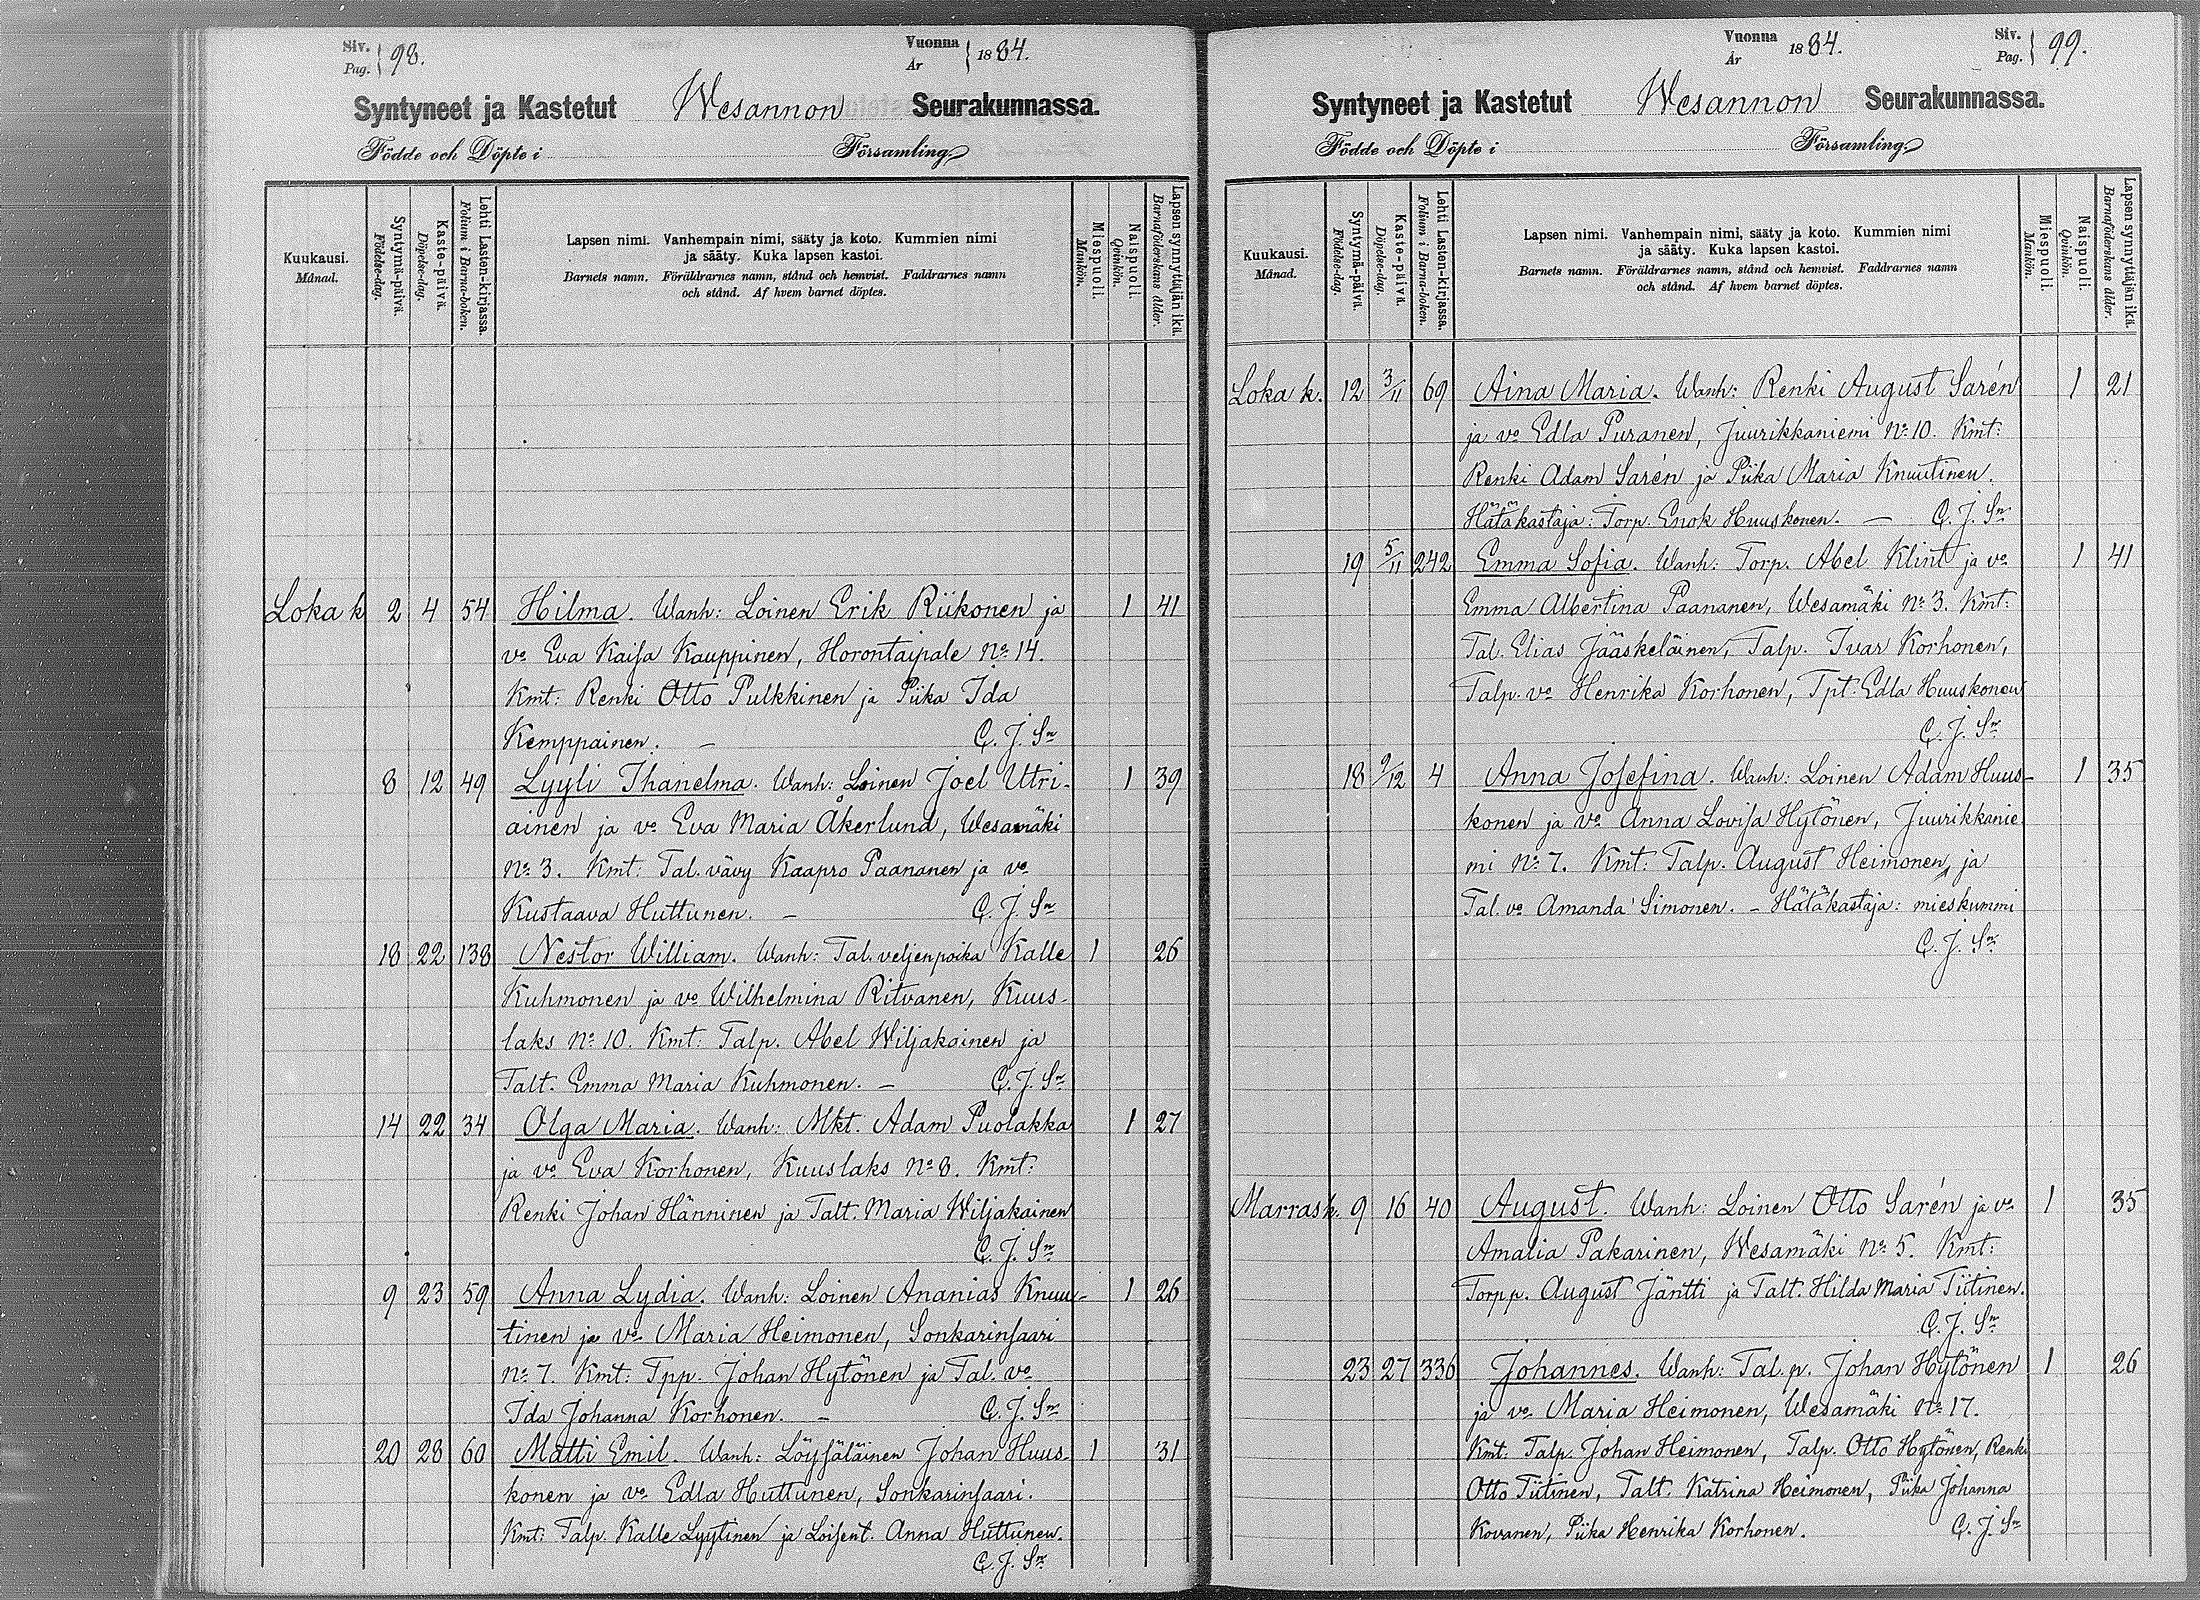 Siv. Pag. 98.
Vuonna År 1884.
Syntyneet ja Kastetut Wesannon Seurakunnassa.
Födde och Döpte i Församling.
Kuukausi. Månad.
Syntymä-päivä. Födelse-dag.
Kaste-päivä. Döpelse-dag.
Lehti Lasten-kirjassa. Folium i Barna-boken.
Lapsen nimi. Vanhempain nimi, sääty ja koto. Kummien nimi
ja sääty. Kuka lapsen kastoi.
Barnets namn. Föräldrarnes namn, stånd och hemvist. Faddrarnes namn
och stånd. Af hvem barnet döptes.
Miespuoli. Mankön.
Naispuoli. Qvinkön.
Lapsen synnyttäjän ikä. Barnaföderskans ålder.
Loka k 2 4 54 Hilma. Wanh: Loinen Erik Riikonen ja 1 41
vo Eva Kaisa Kauppinen, Horontaipale No 14.
Kmt: Renki Otto Pulkkinen ja Piika Ida
Kemppainen. – C. J. Sn
8 12 49 Lyyli Ihanelma. Wanh: Loinen Joel Utri- 1 39
ainen ja vo Eva Maria Åkerlund, Wesamäki
No 3. Kmt: Tal. vävy Kaapro Paananen ja vo
Kustaava Huttunen. – C. J. Sn
18 22 138 Nestor William. Wanh: Tal. veljenpoika Kalle 1 26
Kuhmonen ja vo Wilhelmina Ritvanen, Kuus-
laks No 10. Kmt: Talp. Abel Wiljakainen ja
Talt. Emma Maria Kuhmonen. – C. J. Sn
14 22 34 Olga Maria. Wanh: Mkt. Adam Puolakka 1 27
ja vo Eva Korhonen, Kuuslaks No 8. Kmt:
Renki Johan Hänninen ja Talt. Maria Wiljakainen
C. J. Sn
9 23 59 Anna Lydia. Wanh: Loinen Ananias Knuu- 1 26
tinen ja vo Maria Heimonen, Sonkarinsaari
No 7. Kmt: Tpp. Johan Hytönen ja Tal. vo
Ida Johanna Korhonen. – C. J. Sn
20 28 60 Matti Emil. Wanh: Löysäläinen Johan Huus- 1 31
konen ja vo Edla Huttunen, Sonkarinsaari.
Kmt: Talp. Kalle Lyytinen ja Loisent. Anna Huttunen.
C. J. Sn
Vuonna År 1884.
Siv. Pag. 99.
Syntyneet ja Kastetut Wesannon Seurakunnassa.
Födde och Döpte i Församling.
Kuukausi. Månad.
Syntymä-päivä. Födelse-dag.
Kaste-päivä. Döpelse-dag.
Lehti Lasten-kirjassa. Folium i Barna-boken.
Lapsen nimi. Vanhempain nimi, sääty ja koto. Kummien nimi
ja sääty. Kuka lapsen kastoi.
Barnets namn. Föräldrarnes namn, stånd och hemvist. Faddrarnes namn
och stånd. Af hvem barnet döptes.
Miespuoli. Mankön.
Naispuoli. Qvinkön.
Lapsen synnyttäjän ikä. Barnaföderskans ålder.
Loka k. 12 3/11 69 Aina Maria. Wanh: Renki August Sarén 1 21
ja vo Edla Puranen, Juurikkaniemi No 10. Kmt:
Renki Adam Sarén ja Piika Maria Knuutinen.
Hätäkastaja: Torp. Enok Huuskonen. – C. J. Sn
19 5/11 242 Emma Sofia. Wanh: Torp. Abel Klint ja vo 1 41
Emma Albertina Paananen, Wesamäki No 3. Kmt:
Tal. Elias Jääskeläinen, Talp. Ivar Korhonen,
Talp. vo Henrika Korhonen, Tpt. Edla Huuskonen
C. J. Sn
18 9/12 4 Anna Josefina. Wanh: Loinen Adam Huus- 1 35
konen ja vo Anna Lovisa Hytönen, Juurikkanie
mi No 7. Kmt: Talp. August Heimonen, ja
Tal. vo Amanda Simonen. – Hätäkastaja: mieskummi
C. J. Sn
Marrask. 9 16 40 August. Wanh: Loinen Otto Sarén ja vo 1 35
Amalia Pakarinen, Wesamäki No 5. Kmt:
Torpp. August Jäntti ja Talt. Hilda Maria Tiitinen.
C. J. Sn
23 27 336 Johannes. Wanh: Tal. p. Johan Hytönen 1 26
ja vo Maria Heimonen, Wesamäki No 17.
Kmt: Talp. Johan Heimonen, Talp. Otto Hytönen, Renki
Otto Tiitinen, Talt. Katrina Heimonen, Piika Johanna
Kovanen, Piika Henrika Korhonen. C. J. Sn